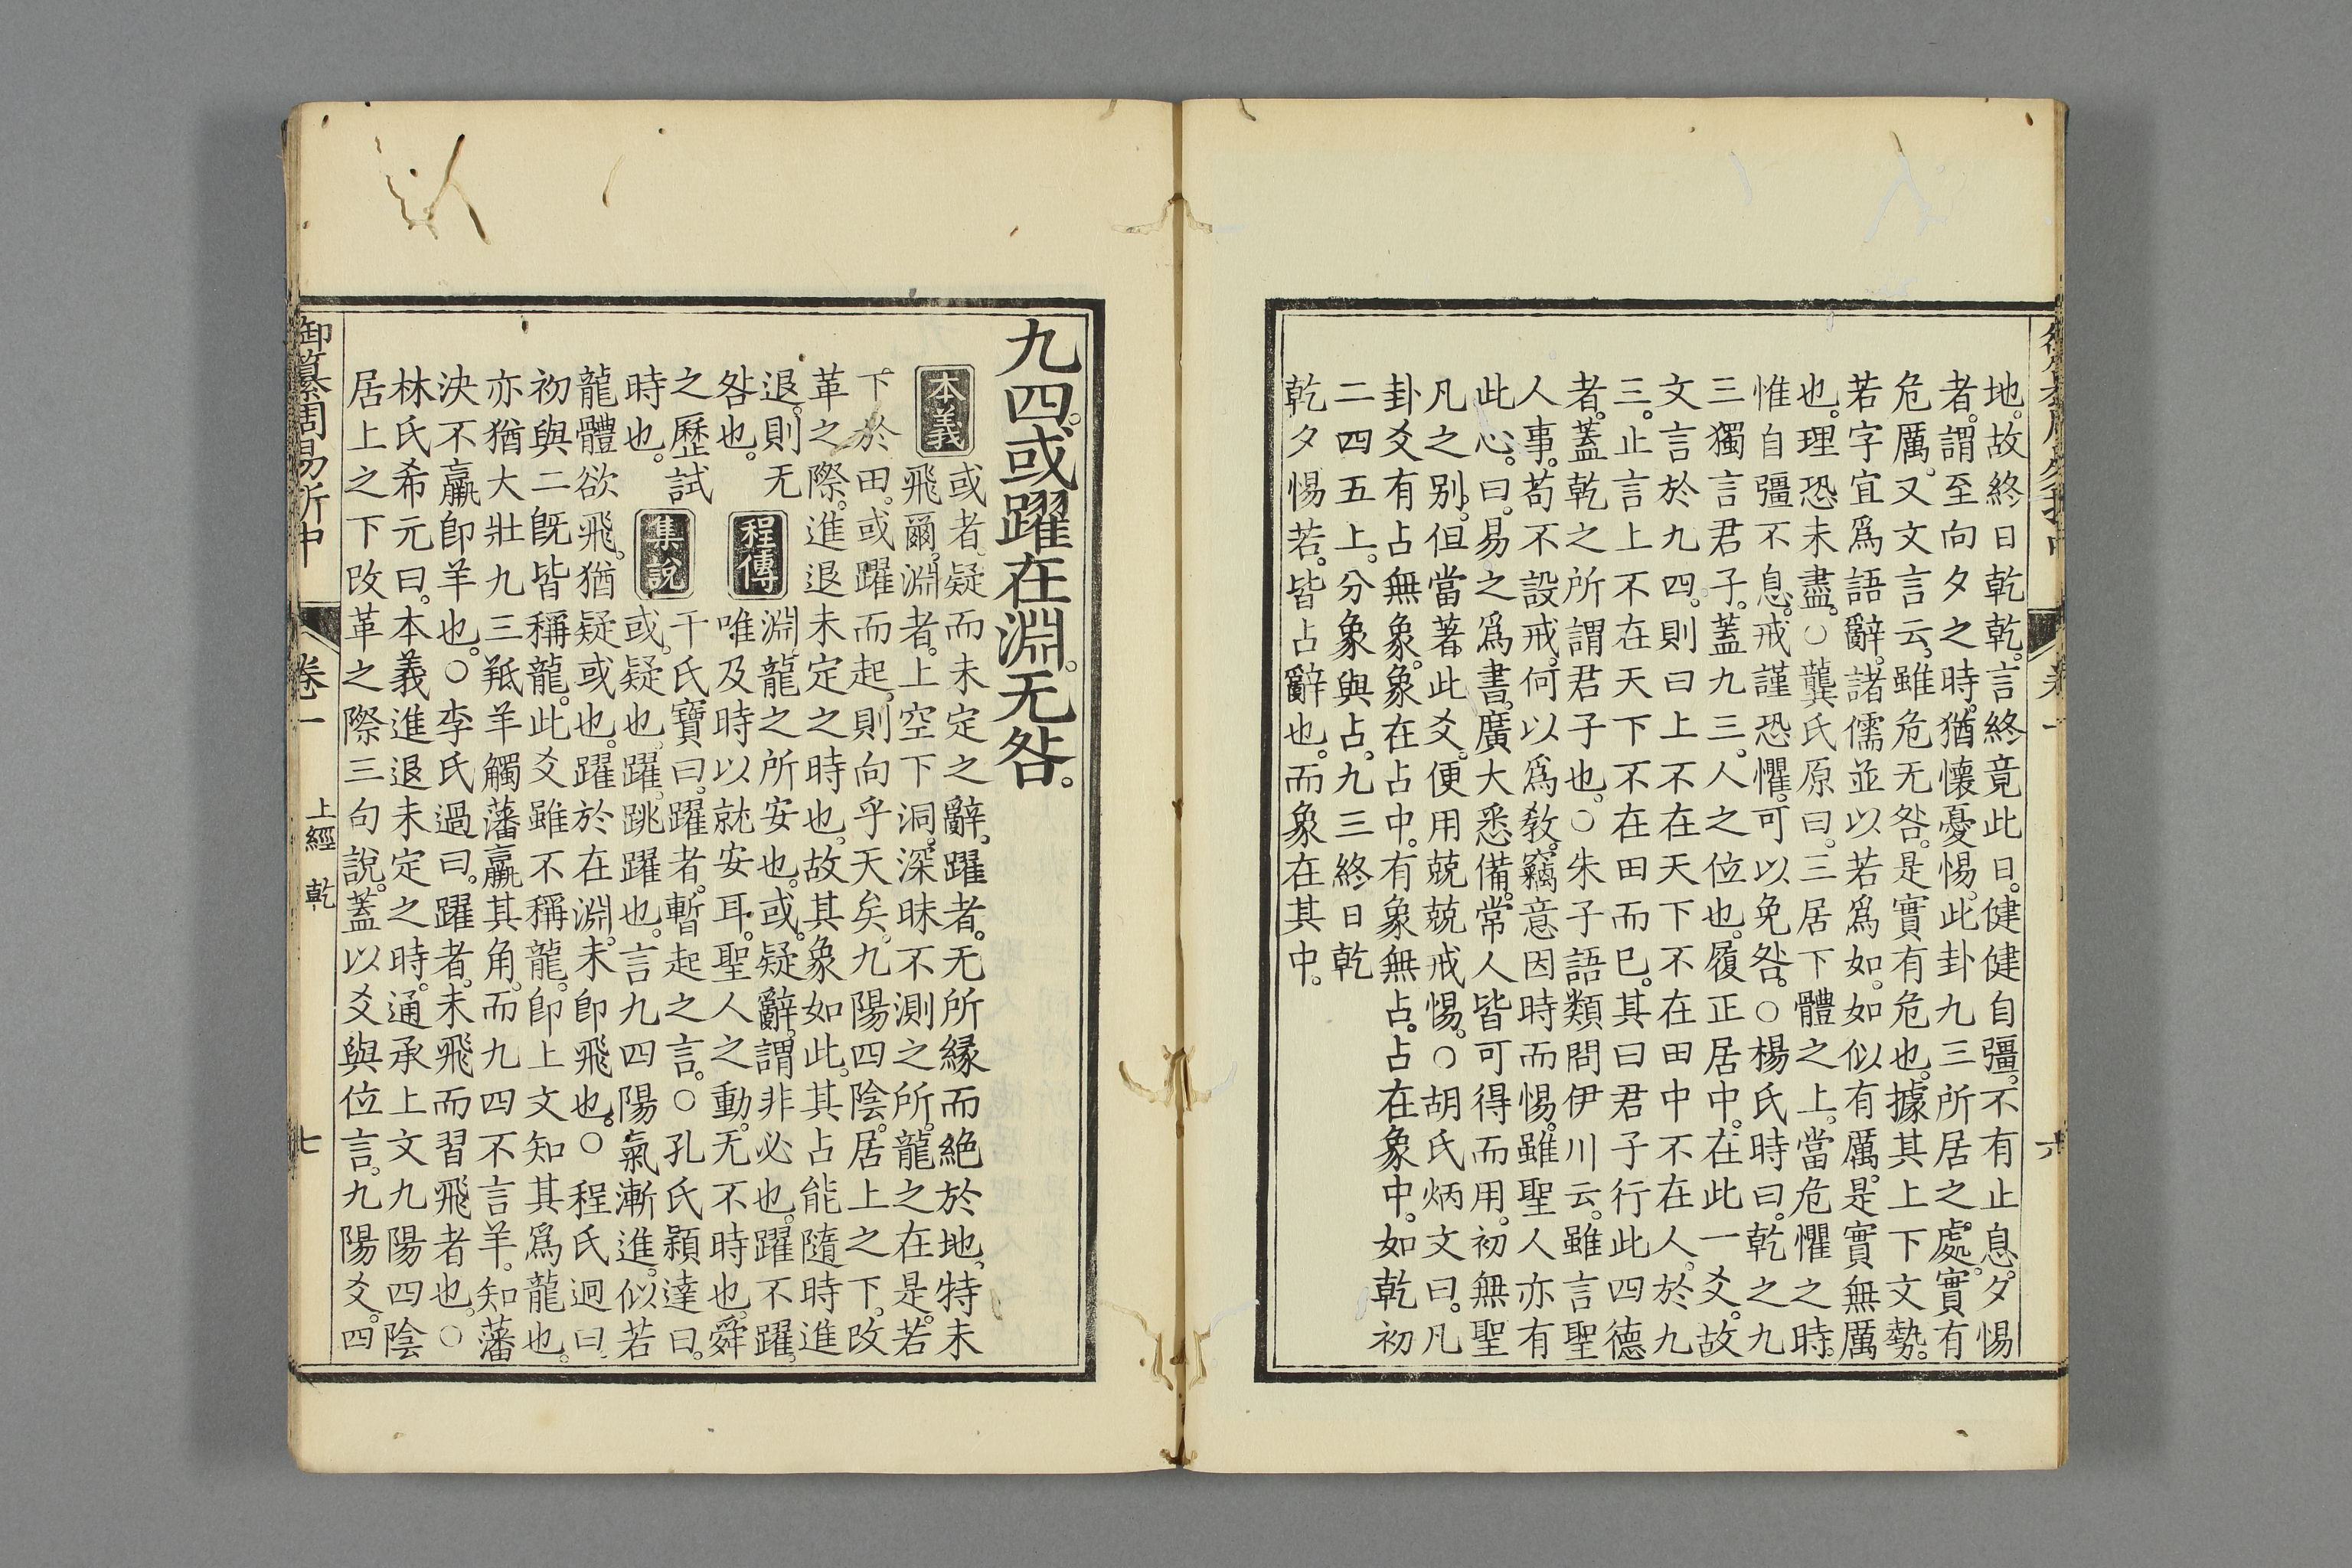 地。故終日乾乾。言終竟此日。健健自彊。不有止息。夕惕
者。謂至向夕之時。猶懷憂惕。此卦九三所居之處。實有
危厲。又文言云。雖危无咎。是實有危也。據其上下文勢。
若字宜爲語辭。諸儒並以若爲如。如似有厲。是實無厲
也。理恐未盡。○龔氏原曰。三居下體之上。當危懼之時。
惟自彊不息。戒謹恐懼。可以免咎。○楊氏時曰。乾之九
三獨言君子。蓋九三。人之位也。履正居中。在此一爻。故
文言於九四。則曰上不在天下不在田中不在人。於九
三。止言上不在天下不在田而已。其曰君子行此四德
者。蓋乾之所謂君子也。○朱子語類問伊川云。雖言聖
人事。苟不設戒。何以爲敎。竊意因時而惕。雖聖人亦有
此心。曰。易之爲書。廣大悉備。常人皆可得而用。初無聖
凡之别。但當著此爻。便用兢兢戒惕。○胡氏炳文曰。凡
卦爻有占無象。象在占中。有象無占。占在象中。如乾初
二四五上。分象與占。九三終日乾
乾夕惕若。皆占辭也。而象在其中。
九四。或躍在淵。无咎。
本義 或者。疑而未定之辭。躍者。无所緣而絶於地。特未
飛爾。淵者。上空下洞。深昧不測之所。龍之在是。若
下於田。或躍而起。則向乎天矣。九陽四陰。居上之下。改
革之際。進退未定之時也。故其象如此。其占能隨時進
退。則无
咎也。
程傳 淵。龍之所安也。或。疑辭。謂非必也。躍不躍。
唯及時以就安耳。聖人之動。无不時也。舜
之歷試
時也。
集說 干氏寶曰。躍者。暫起之言。○孔氏穎達曰。
或。疑也。躍。跳躍也。言九四陽氣漸進。似若
龍體欲飛。猶疑或也。躍於在淵。未卽飛也。○程氏迥曰
初與二旣皆稱龍。此爻雖不稱龍。卽上文知其爲龍也。
亦猶大壯九三羝羊觸藩羸其角。而九四不言羊。知藩
決不羸卽羊也。○李氏過曰。躍者。未飛而習飛者也。○
林氏希元曰。本義進退未定之時。通承上文九陽四陰
居上之下改革之際三句說。蓋以爻與位言。九陽爻。四
御纂周易折中 卷一 上經 乾 七